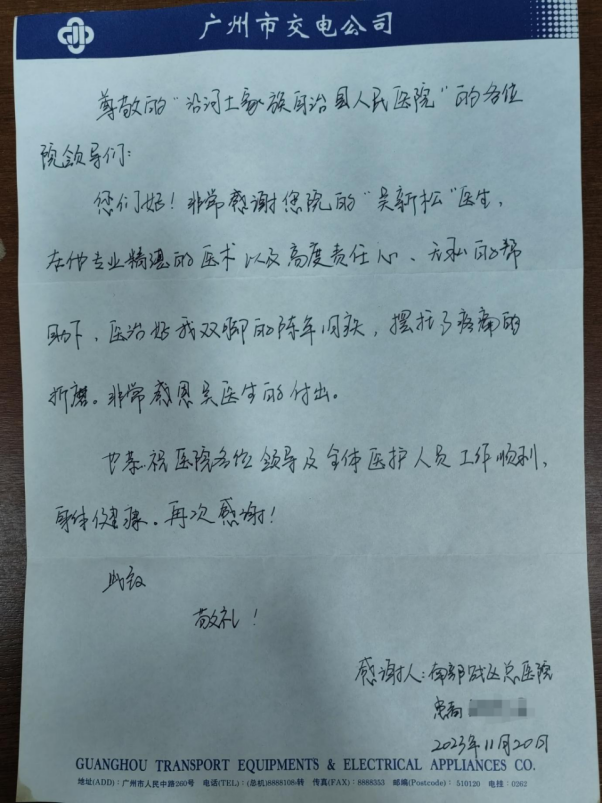 广州市交电公司
尊敬的“沿河土家族自治县人民医院”的各位
院领导们:
您们好！非常感谢您院的“吴新松”医生，
在他专业精湛的医术以及高度责任心、无私的帮
助下，医治好我双脚的陈年旧疾，摆托了疼痛的
折磨。非常感恩吴医生的付出。
恭祝医院各位领导及全体医护人员工作顺利、
身体健康。再次感谢！
此致
敬礼！
感谢人：南部战区总医院
患者
2023年11月20日
GUANGHOU TRANSPORT EQUIPMENTS & ELECTRICAL APPLIANCES CO.
地址(ADD):广州市人民中路260号 电话(TEL):(总机)8888108转 传真(FAX):8888353 邮编(Postcode):510120 电挂:0262